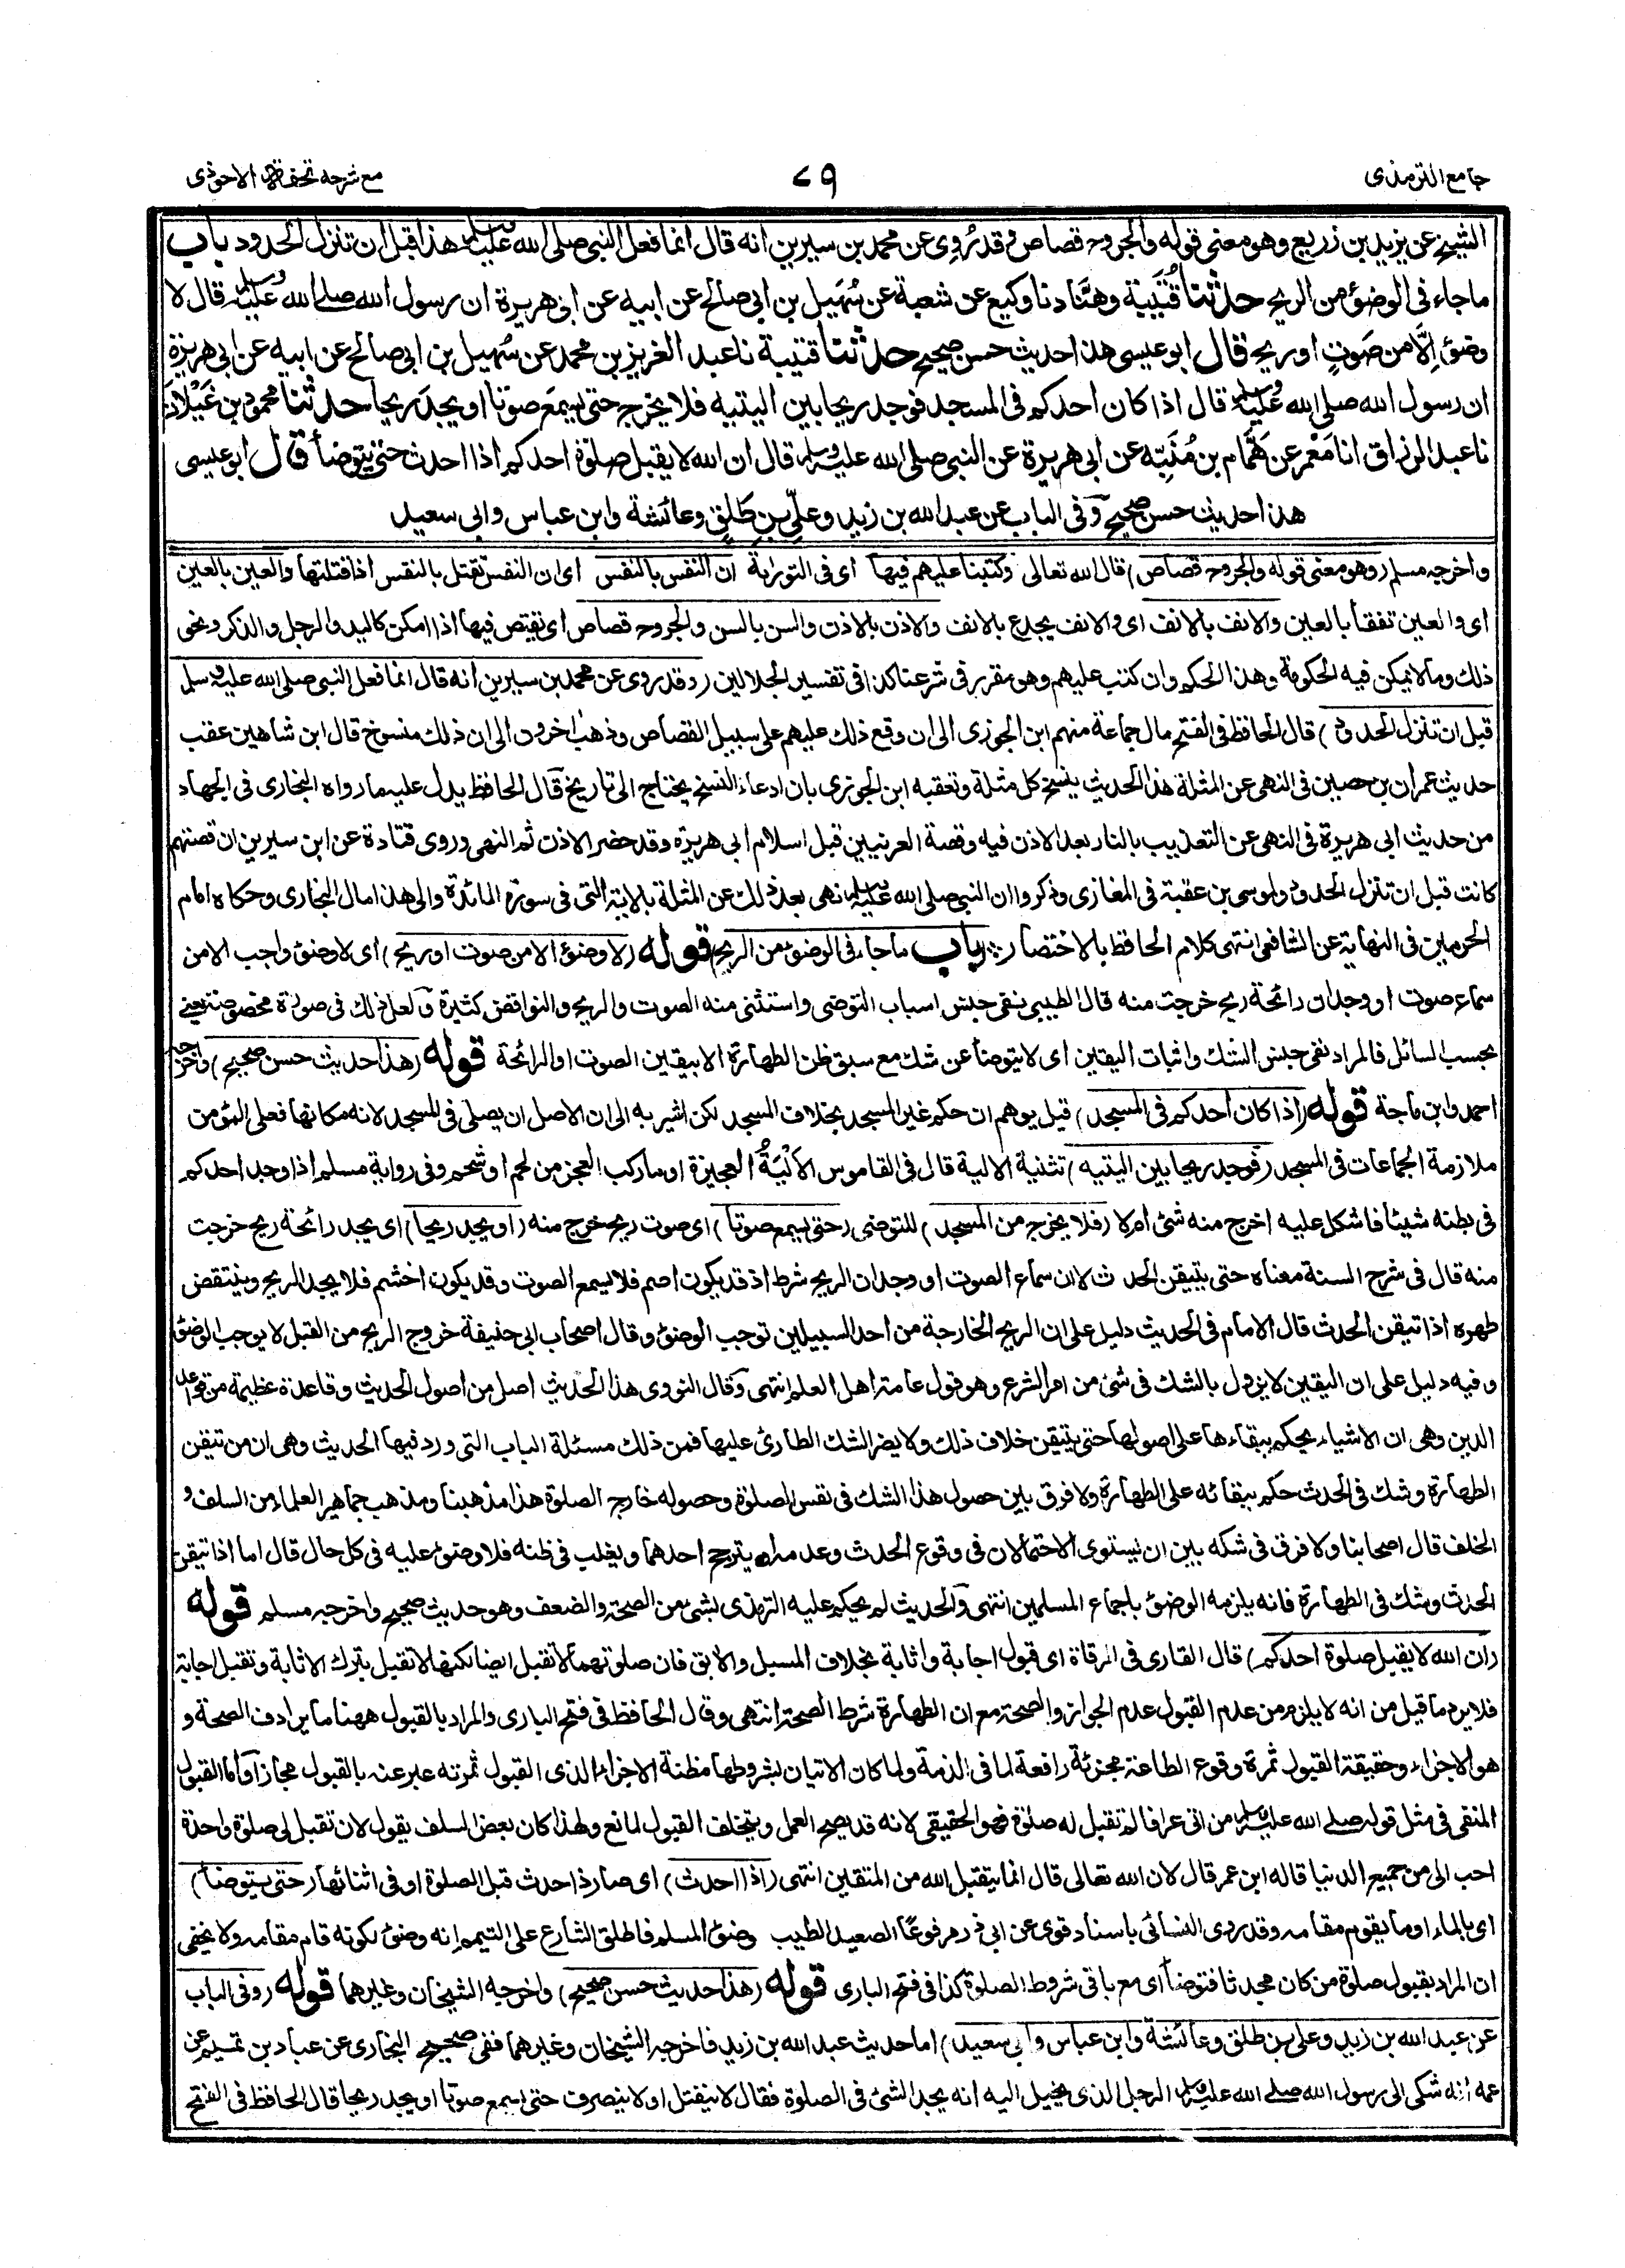 جامع الترمذى
٧٩
مع شرحه تحفة الاحوذى
الشيخ عن يزيد بن زريع وهو معنى قوله والجروح قصاص وقد رُوِى عن محمد بن سيرين انه قال انما فعل النبى صلى الله عليه وسلم هذا قبل ان تنزل الحدود باب
ماجاء فى الوضوء من الريح حدثنا قُتَيبة وهنّاد نا وكيع عن شعبة عن سُهَيل بن ابى صالح عن ابيه عن ابى هريرة ان رسول الله صلے الله عليه وسلم قال لا
وضوء اِلّا من صَوتٍ او ريح قال ابو عيسى هذا حديث حسن صحيح حدثنا قتيبة نا عبد العزيز بن محمد عن سُهيل بن ابى صالح عن ابيه عن ابى هريرة
ان رسول الله صلى الله عليه وسلم قال اذا كان احدكم فى المسجد فوجد ريحا بين اليتيه فلا يخرج حتى يسمعَ صوتا او يجدَ ريحا حدثنا محمود بن غَيْلان
نا عبد الرزاق انا مَعْمر عن هَمَّام بن مُنَبِّه عن ابى هريرة عن النبى صلى الله عليه وسلم قال ان الله لا يقبل صلوة احدكم اذا احدث حتى يتوضأ قال ابو عيسى
هذا حديث حسن صحيح وفى الباب عن عبد الله بن زيد وعلىّ بن طَلقٍ وعائشة وابن عباس وابى سعيد
واخرجه مسلم (وهو معنى قوله والجروح قصاص) قال الله تعالى وكتبنا عليهم فيها اى فى التوراة ان النفس بالنفس اى ان النفس تقتل بالنفس اذا قتلتها والعين بالعين
اى والعين تفقأ بالعين والانف بالانف اى والانف يجدع بالانف والاذن بالاذن والسن بالسن والجروح قصاص اى يقتص فيها اذا امكن كاليد والرجل والذكر ونحو
ذلك وما لا يمكن فيه الحكومة وهذا الحكم وان كتب عليهم وهو مقرر فى شرعنا كذا فى تفسير الجلالين (وقد روى عن محمد بن سيرين انه قال انما فعل النبى صلى الله عليه وسلم
قبل ان تنزل الحدود) قال الحافظ فى الفتح مال جماعة منهم ابن الجوزى الى ان وقع ذلك عليهم على سبيل القصاص وذهب اخرون الى ان ذلك منسوخ قال ابن شاهين عقب
حديث عمران بن حصين فى النهى عن المثلة هذا الحديث ينسخ كل مثلة وتعقبه ابن الجوزى بان ادعاء النسخ يحتاج الى تاريخ قال الحافظ يدل عليه ما رواه البخارى فى الجهاد
من حديث ابى هريرة فى النهى عن التعذيب بالنار بعد الاذن فيه وقصة العرنيين قبل اسلام ابى هريرة وقد حضر الاذن ثم النهى وروى قتادة عن ابن سيرين ان قصتهم
كانت قبل ان تنزل الحدود ولموسى بن عقبة فى المغازى وذكروا ان النبى صلى الله عليه وسلم نهى بعد ذلك عن المثلة بالاية التى فى سورة المائدة والى هذا مال البخارى وحكاه امام
الحرمين فى النهاية عن الشافعى انتهى كلام الحافظ بالاختصار باب ماجاء فى الوضوء من الريح قوله (لا وضوء الا من صوت او ريح) اى لا وضوء واجب الا من
سماع صوت او وجدان رائحة ريح خرجت منه قال الطيبى نفى جنس اسباب التوضى واستثنى منه الصوت والريح والنواقض كثيرة ولعل ذلك فى صورة مخصوصة يعنے
بحسب السائل فالمراد نفى جنس الشك واثبات اليقين اى لا يتوضأ عن شك مع سبق ظن الطهارة الا بيقين الصوت او الرائحة قوله (هذا حديث حسن صحيح) واخرجه
احمد وابن ماجة قوله (اذا كان احدكم فى المسجد) قيل يوهم ان حكم غير المسجد بخلاف المسجد لكن اشير به الى ان الاصل ان يصلى فى المسجد لانه مكانها فعلى المؤمن
ملازمة الجماعات فى المسجد (فوجد ريحا بين اليتيه) تثنية الالية قال فى القاموس الاَلْيَةُ العجيزة او ما ركب العجز من لحم او شحم وفى رواية مسلم اذا وجد احدكم
فى بطنه شيئا فاشكل عليه اخرج منه شئ ام لا (فلا يخرج من المسجد) للتوضى (حتى يسمع صوتا) اى صوت ريح خرج منه (او يجد ريحا) اى يجد رائحة ريح خرجت
منه قال فى شرح السنة معناه حتى يتيقن الحدث لا ان سماع الصوت او وجدان الريح شرط اذ قد يكون اصم فلا يسمع الصوت وقد يكون اخشم فلا يجد الريح وينتقض
طهره اذا تيقن الحدث قال الامام فى الحديث دليل على ان الريح الخارجة من احد السبيلين توجب الوضوء وقال اصحاب ابى حنيفة خروج الريح من القبل لا يوجب الوضوء
وفيه دليل على ان اليقين لا يزول بالشك فى شئ من امر الشرع وهو قول عامة اهل العلم انتهى وقال النووى هذا الحديث اصل من اصول الحديث وقاعدة عظيمة من قواعد
الدين وهى ان الاشياء يحكم ببقاءها على اصولها حتى يتيقن خلاف ذلك ولا يضر الشك الطارئ عليها فمن ذلك مسئلة الباب التى ورد فيها الحديث وهى ان من تيقن
الطهارة وشك فى الحدث حكم ببقائه على الطهارة ولا فرق بين حصول هذا الشك فى نفس الصلوة وحصوله خارج الصلوة هذا مذهبنا ومذهب جماهير العلماء من السلف و
الخلف قال اصحابنا ولا فرق فى شكه بين ان يستوى الاحتمالان فى وقوع الحدث وعدمه او يترجح احدهما ويغلب فى ظنه فلا وضوء عليه فى كل حال قال اما اذا تيقن
الحدث وشك فى الطهارة فانه يلزمه الوضوء باجماع المسلمين انتهى والحديث لم يحكم عليه الترمذى بشئ من الصحة والضعف وهو حديث صحيح واخرجه مسلم قوله
(ان الله لا يقبل صلوة احدكم) قال القارى فى المرقاة اى قبول اجابة واثابة بخلاف المسبل والابق فان صلوتهما لا تقبل ايضا لكنها لا تقبل بترك الاثابة وتقبل اجابة
فلا يرد ما قيل من انه لا يلزم من عدم القبول عدم الجواز والصحة مع ان الطهارة شرط الصحة انتهى وقال الحافظ فى فتح البارى والمراد بالقبول ههنا ما يرادف الصحة و
هو الاجزاء وحقيقة القبول ثمرة وقوع الطاعة مجزئة رافعة لما فى الذمة ولما كان الاتيان بشروطها مظنة الاجزاء الذى القبول ثمرته عبر عنه بالقبول مجازا واما القبول
المنفى فى مثل قوله صلے الله عليه وسلم من اتى عرافا لم تقبل له صلوة فهو الحقيقى لانه قد يصح العمل ويتخلف القبول لمانع ولهذا كان بعض السلف يقول لان تقبل لى صلوة واحدة
احب الى من جميع الدنيا قاله ابن عمر قال لان الله تعالى قال انما يتقبل الله من المتقين انتهى (اذا احدث) اى صار ذا حدث قبل الصلوة او فى اثنائها (حتى يتوضأ)
اى بالماء او ما يقوم مقامه وقد روى النسائى باسناد قوى عن ابى ذر مرفوعًا الصعيد الطيب وضوء المسلم فاطلق الشارع على التيمم انه وضوء لكونه قام مقامه ولا يخفى
ان المراد بقبول صلوة من كان محدثا فتوضأ اى مع باقى شروط الصلوة كذا فى فتح البارى قوله (هذا حديث حسن صحيح) واخرجه الشيخان وغيرهما قوله (وفى الباب
عن عبد الله بن زيد وعلى بن طلق وعائشة وابن عباس وابى سعيد) اما حديث عبد الله بن زيد فاخرجه الشيخان وغيرهما ففى صحيح البخارى عن عباد بن تميم عن
عمه انه شكى الى رسول الله صلے الله عليه وسلم الرجل الذى يخيل اليه انه يجد الشئ فى الصلوة فقال لا ينفتل او لا ينصرف حتى يسمع صوتا او يجد ريحا قال الحافظ فى الفتح